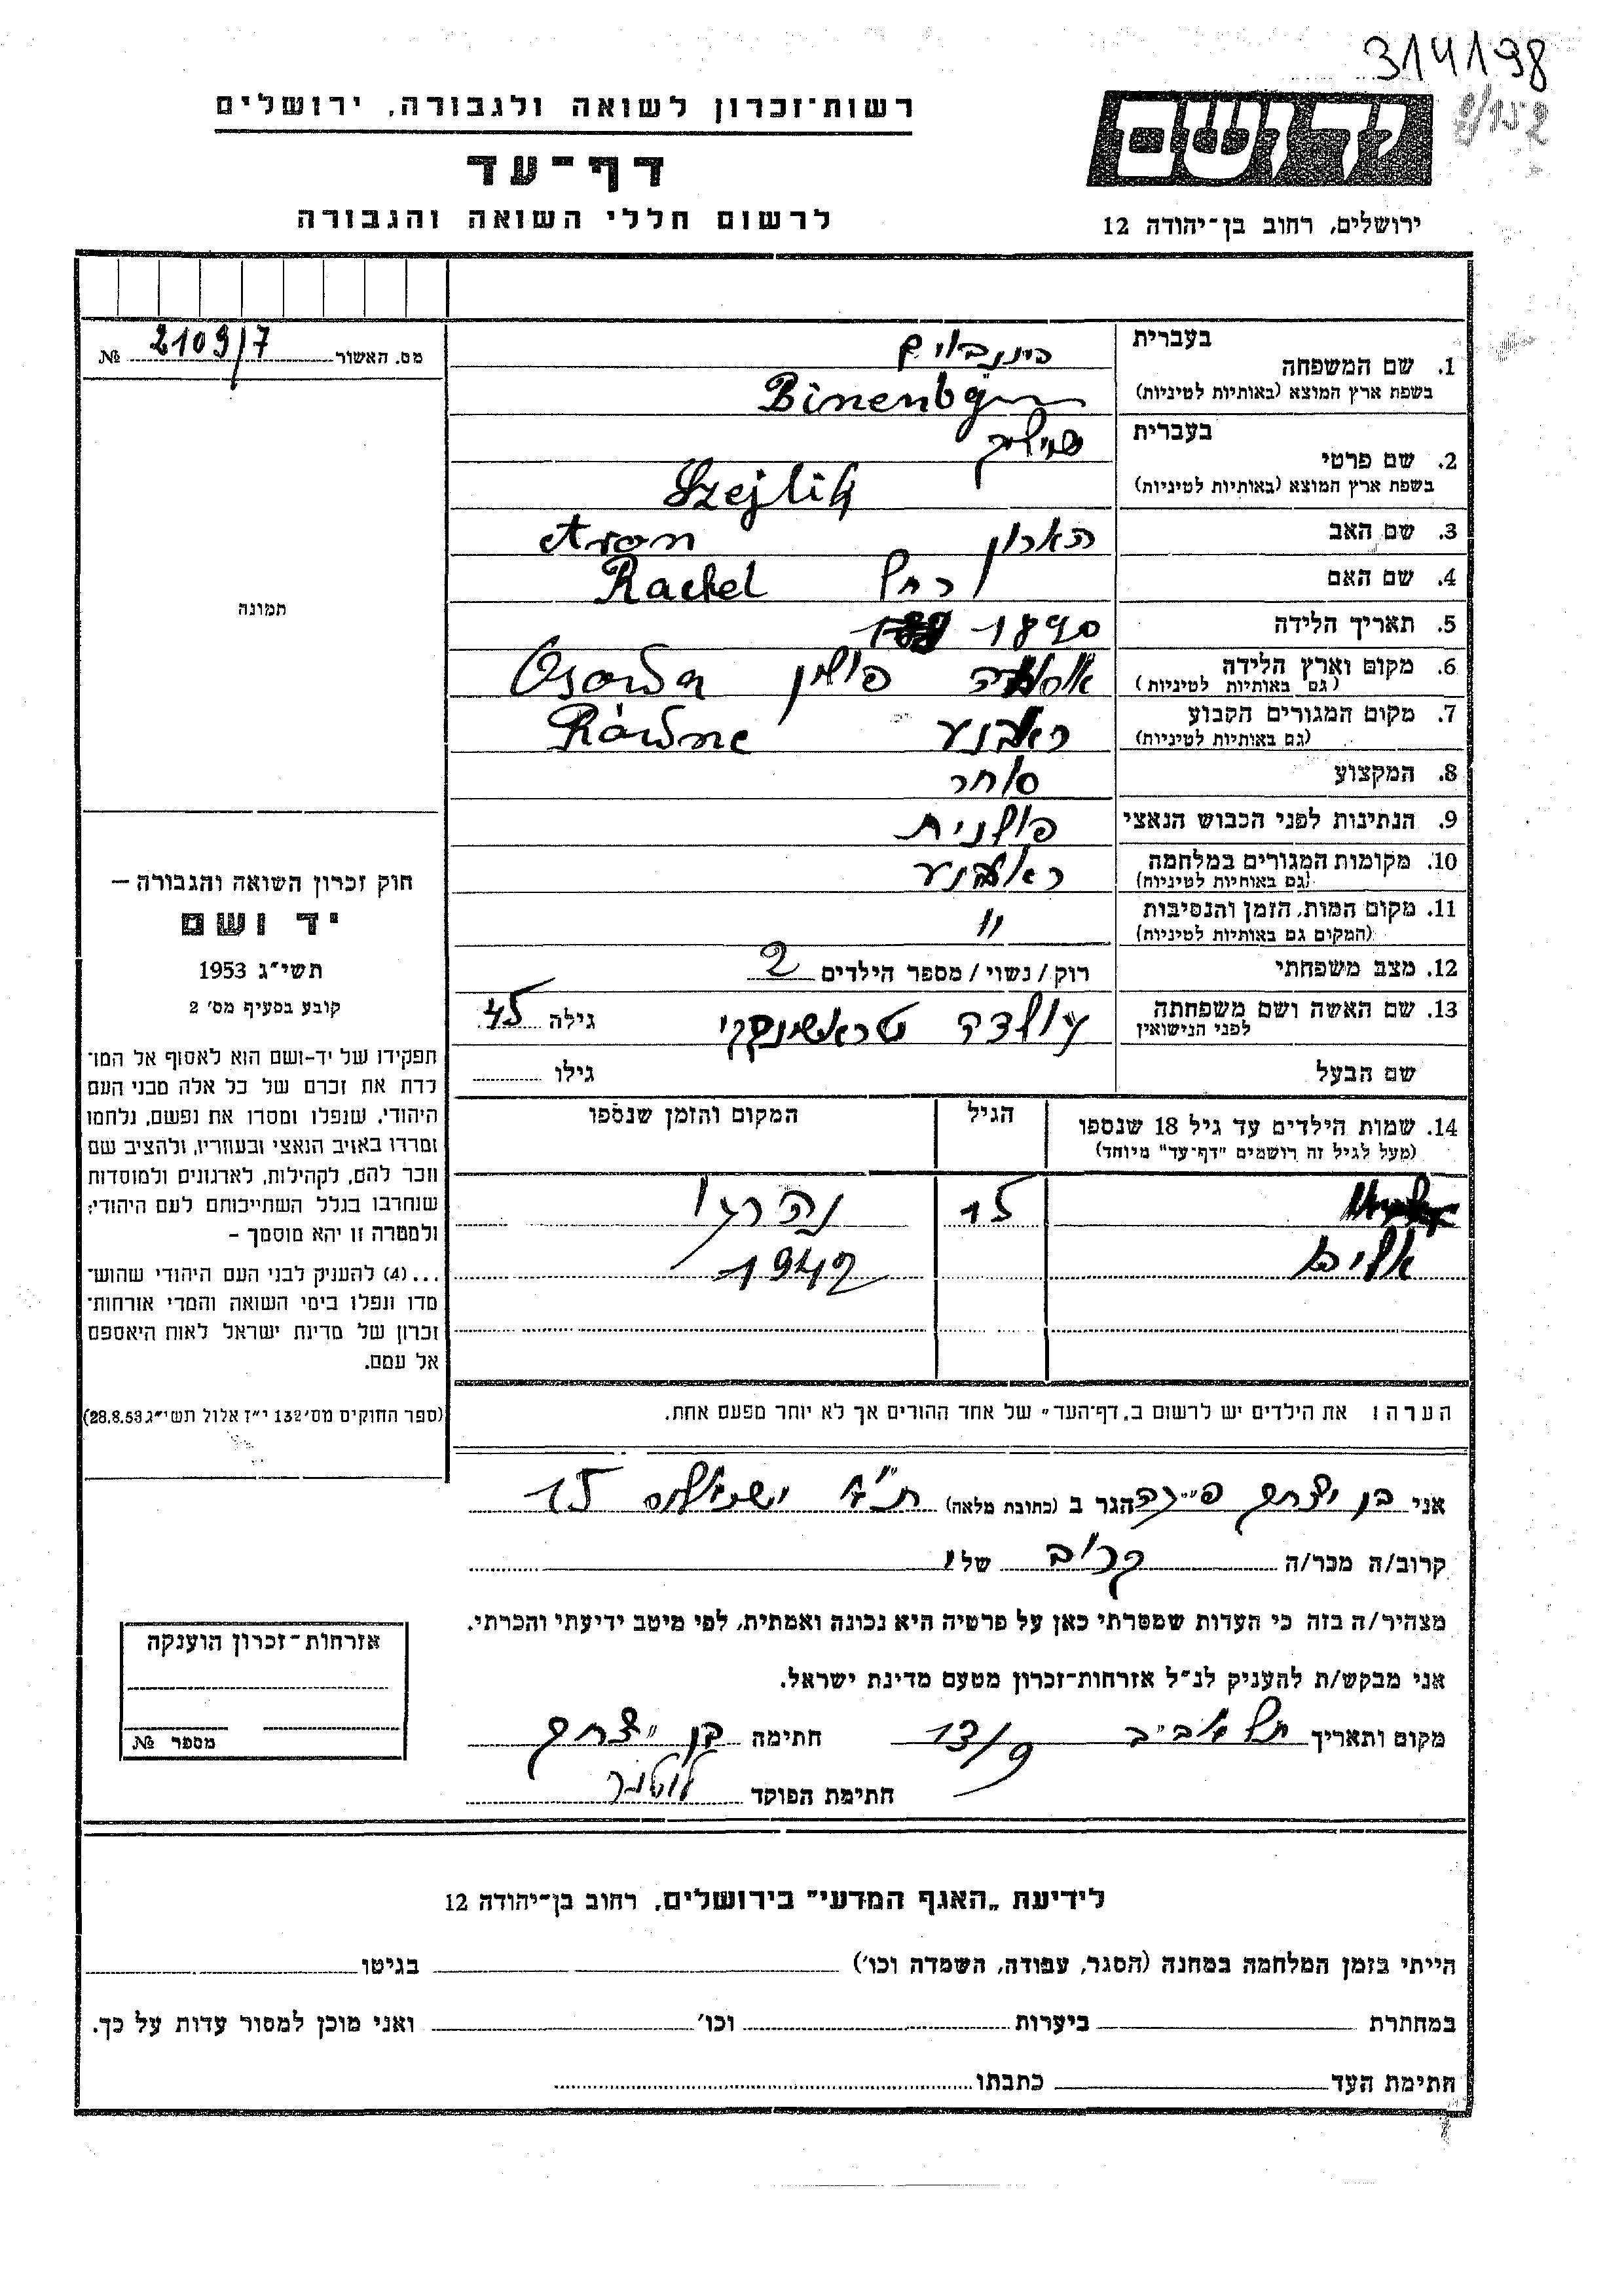 314198
8/152
יד ושם
ירושלים, רחוב בן-יהודה 12
רשות-זכרון לשואה ולגבורה, ירושלים
דף-עד
לרשום חללי השואה והגבורה
מס. האשור 2109/7 №
תמונה
1. שם המשפחה
בעברית בינבוים
בשפת ארץ המוצא (באותיות לטיניות)
2. שם פרטי
בעברית שייליק
בשפת ארץ המוצא (באותיות לטיניות) Szejlik
3. שם האב אהרון Aron
4. שם האם רחל Rachel
5. תאריך הלידה 1890
6. מקום וארץ הלידה
(גם באותיות לטיניות) פולין Osowa
7. מקום המגורים הקבוע
(גם באותיות לטיניות) ראוונע Równe
8. המקצוע סוחר
9. הנתינות לפני הכבוש הנאצי פולנית
10. מקומות המגורים במלחמה
(גם באותיות לטיניות) ראוונע
11. מקום המות, הזמן והנסיבות
(המקום גם באותיות לטיניות) "
12. מצב משפחתי רוק/נשוי/מספר הילדים 2
13. שם האשה ושם משפחתה
לפני הנישואין גולדה גילה 45
שם הבעל גילו
14. שמות הילדים עד גיל 18 שנספו
(מעל לגיל זה רושמים "דף-עד" מיוחד)
הגיל
המקום והזמן שנספו
15 נהרגו
1942
הערה: את הילדים יש לרשום ב„דף-העד" של אחד ההורים אך לא יותר מפעם אחת.
חוק זכרון השואה והגבורה –
יד ושם
תשי"ג 1953
קובע בסעיף מס' 2
תפקידו של יד-ושם הוא לאסוף אל המו־
לדת את זכרם של כל אלה מבני העם
היהודי, שנפלו ומסרו את נפשם, נלחמו
ומרדו באויב הנאצי ובעוזריו, ולהציב שם
וזכר להם, לקהילות, לארגונים ולמוסדות
שנחרבו בגלל השתייכותם לעם היהודי;
ולמטרה זו יהא מוסמך –
...(4) להעניק לבני העם היהודי שהוש־
מדו ונפלו בימי השואה והמרי אזרחות־
זכרון של מדינת ישראל לאות היאספם
אל עמם.
(ספר החוקים מס' 132 י"ז אלול תשי"ג 28.8.53)
אני בן יצחק הגר ב (כתובת מלאה) ת"א 15
קרוב/ה מכר/ה קרוב של
מצהיר/ה בזה כי העדות שמסרתי כאן על פרטיה היא נכונה ואמתית, לפי מיטב ידיעתי והכרתי.
אני מבקש/ת להעניק לנ"ל אזרחות-זכרון מטעם מדינת ישראל.
מקום ותאריך תל אביב 13/9 חתימה בן יצחק
חתימת הפוקד
אזרחות-זכרון הוענקה
מספר №
לידיעת „האגף המדעי" בירושלים, רחוב בן-יהודה 12
הייתי בזמן המלחמה במחנה (הסגר, עבודה, השמדה וכו') בגיטו
במחתרת ביערות וכו' ואני מוכן למסור עדות על כך.
חתימת העד כתבתו